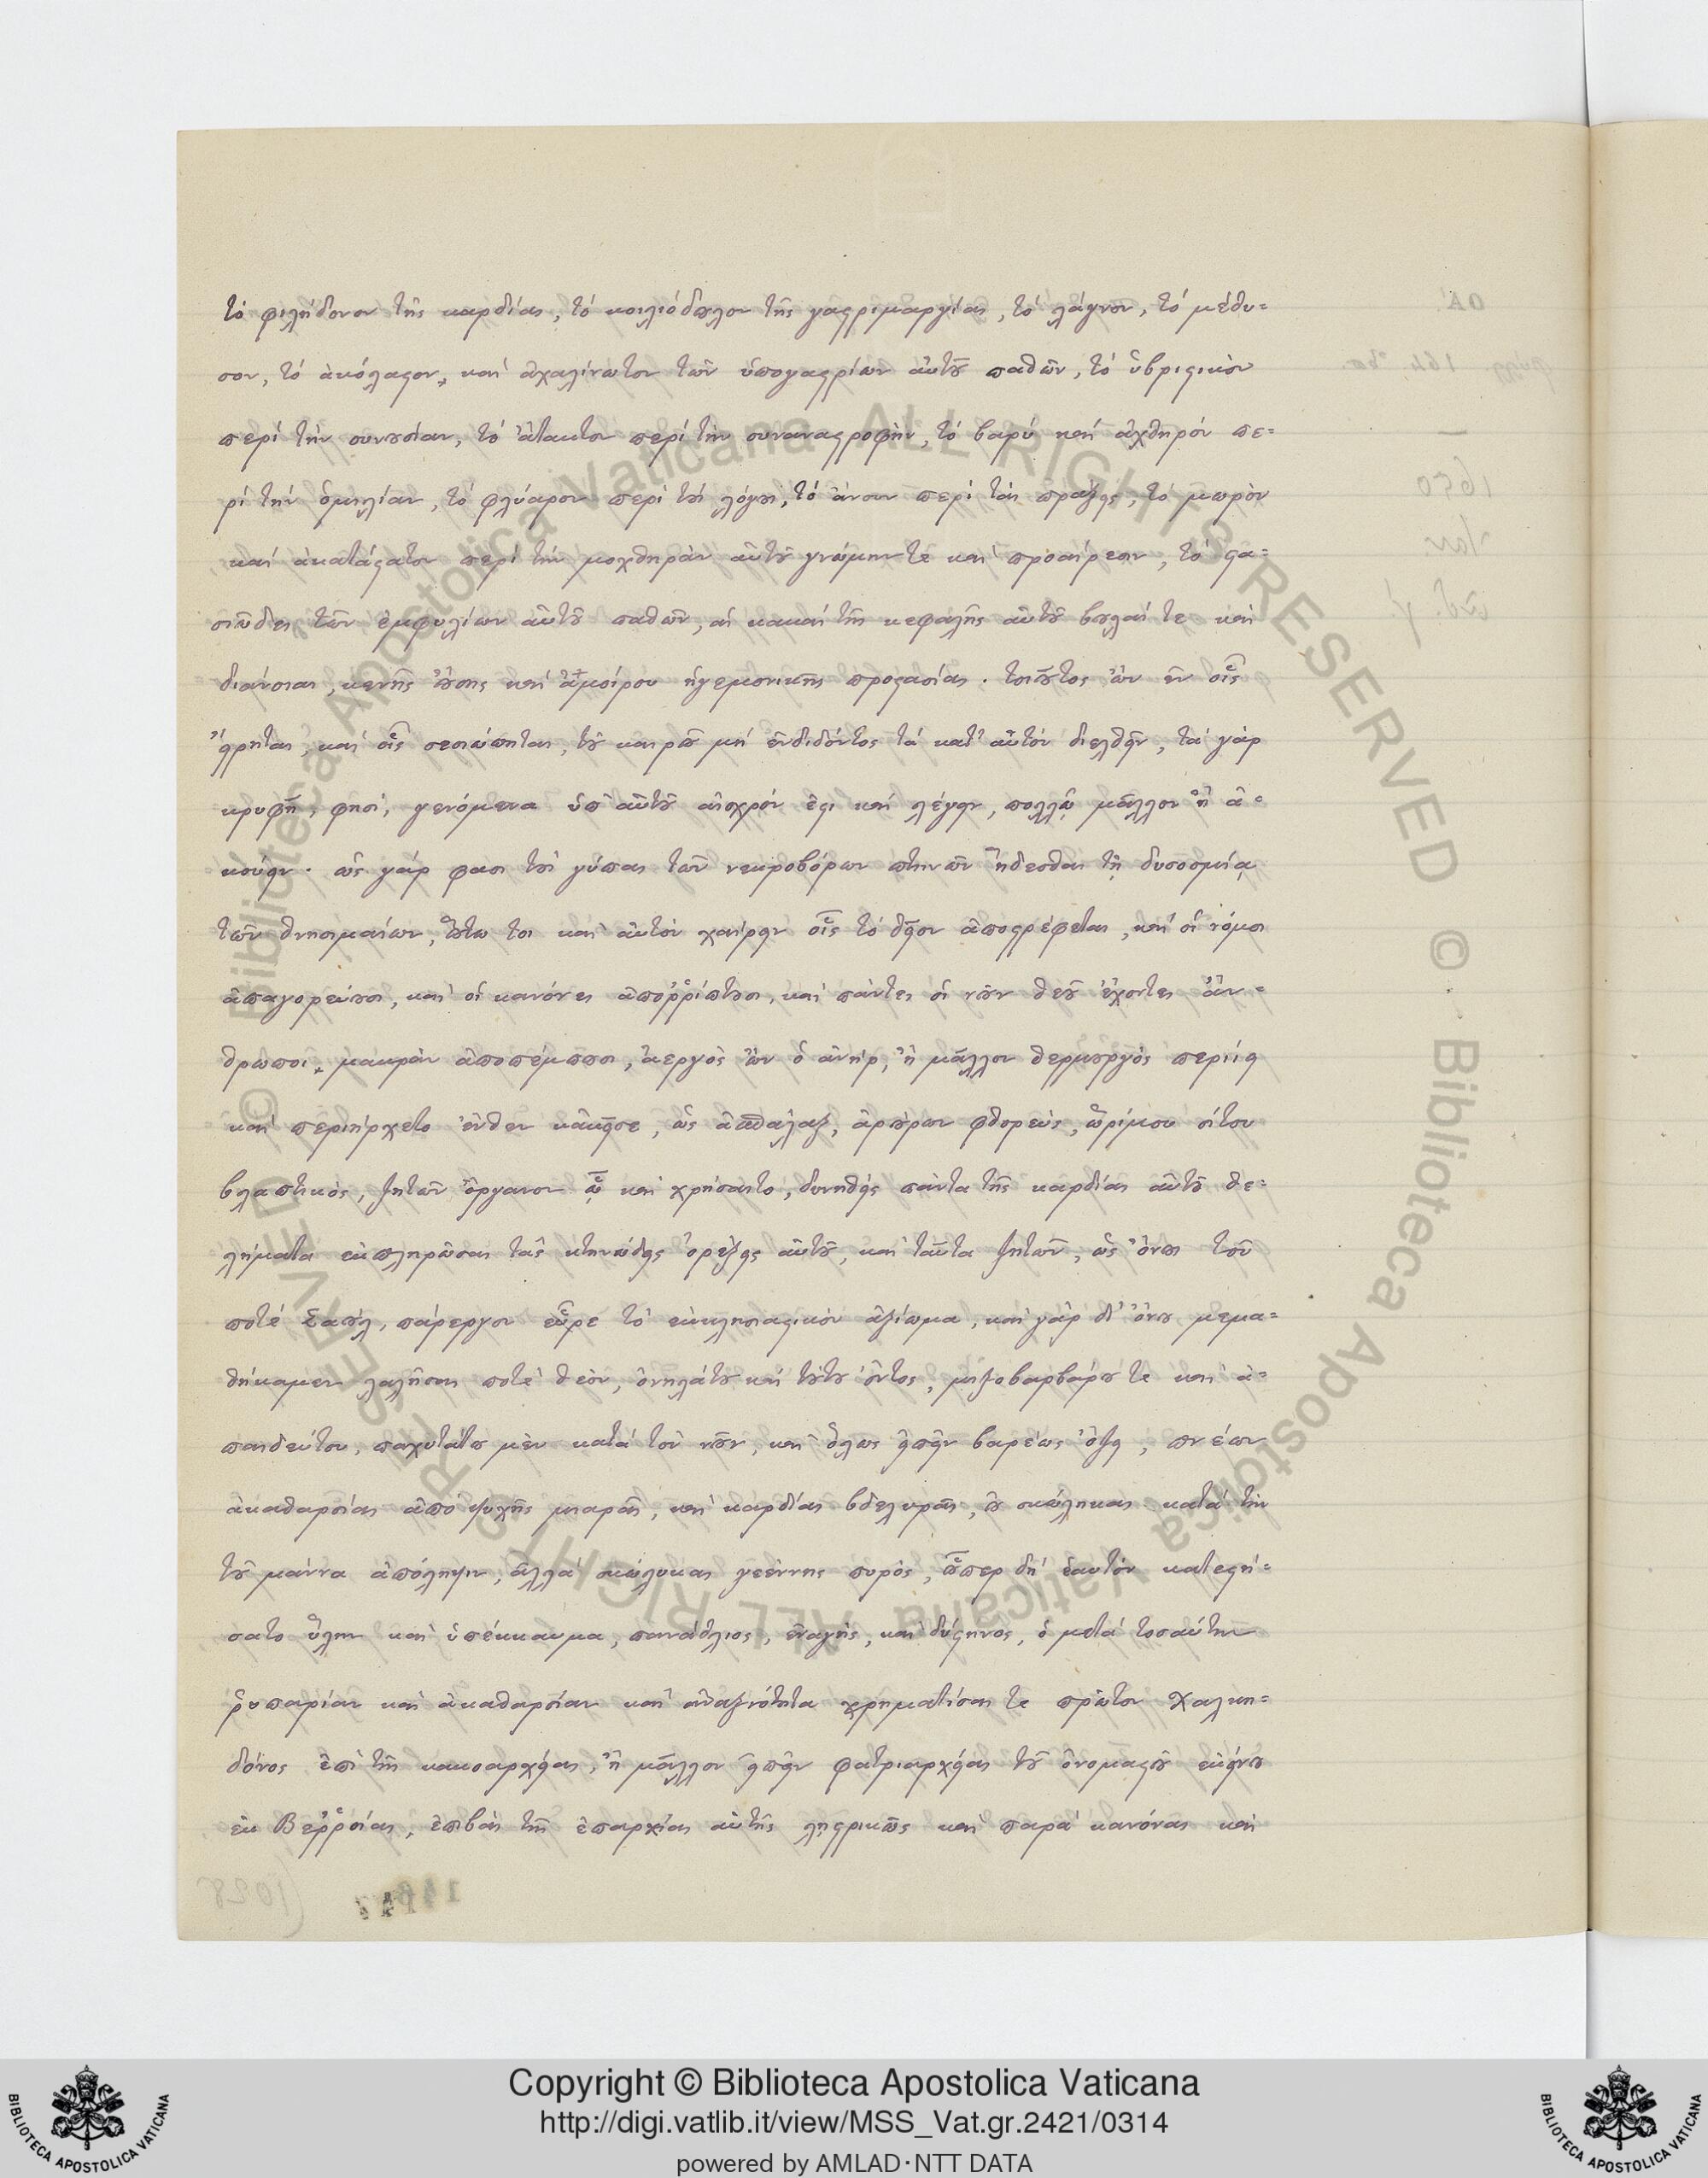 τὸ φιλήδονον τῆς καρδίας, τὸ κοιλιόδουλον τῆς γαστριμαργίας, τὸ λάγνον, τὸ μέθυ=
σον, τὸ ἀκόλαστον, καὶ ἀχαλίνωτον τῶν ὑπογαστρίων αὐτοῦ παθῶν, τὸ ὑβριστικὸν
περὶ τὴν συνουσίαν, τὸ ἄτακτον περὶ τὴν συναναστροφὴν, τὸ βαρὺ καὶ ἀχθηρὸν πε=
ρὶ τὴν ὁμιλίαν, τὸ φλύαρον περὶ τοὺς λόγους, τὸ ἄνουν περὶ τὰς πράξεις, τὸ μωρὸν
καὶ ἀκατάστατον περὶ τὴν μοχθηρὰν αὐτοῦ γνώμην τε καὶ προαίρεσιν, τὸ στα=
σιῶδες τῶν ἐμφυλίων αὐτοῦ παθῶν, αἱ κακαὶ τῆς κεφαλῆς αὐτοῦ βουλαί τε καὶ
διάνοιαι, κενῆς οὔσης καὶ ἀμοίρου ἡγεμονικῆς προστασίας. τοιοῦτος ὢν ἐν οἷς
εἴρηται, καὶ οἷς σεσιώπηται, τοῦ καιροῦ μὴ ἐνδιδόντος τὰ κατ' αὐτὸν διελθεῖν, τὰ γὰρ
κρυφῆ, φησὶ, γενόμενα ὑπ' αὐτοῦ αἰσχρόν ἐστι καὶ λέγειν, πολλῷ μᾶλλον ἢ ἀ=
κούειν. ὡς γάρ φασι τοὺς γύπας τῶν νεκροβόρων πτηνῶν ἥδεσθαι τῇ δυσοσμίᾳ
τῶν θνησιμαίων, οὕτω τοι καὶ αὐτὸν χαίρειν οἷς τὸ θεῖον ἀποστρέφεται, καὶ οἱ νόμοι
ἀπαγορεύουσι, καὶ οἱ κανόνες ἀποῤῥίπτουσι, καὶ πάντες οἱ νοῦν θεοῦ ἔχοντες ἄν=
θρωποι, μακρὰν ἀποπέμπουσι, ἀεργὸς ὢν ὁ ἀνὴρ, ἢ μᾶλλον θερμουργὸς περιῄει
καὶ περιήρχετο ἔνθεν κἀκεῖσε, ὡς ἀσπάλαξ, ἀρούρων φθορεὺς, ὡρίμου σίτου
βλαπτικὸς, ζητῶν ὄργανον ᾧ καὶ χρήσαιτο, δυνηθεὶς πάντα τῆς καρδίας αὐτοῦ θε=
λήματα ἐκπληρῶσαι τὰς κτηνώδεις ὀρέξεις αὐτοῦ, καὶ ταῦτα ζητῶν, ὡς ὄνους τοῦ
ποτὲ Σαοὺλ, πάρεργον εὗρε τὸ ἐκκλησιαστικὸν ἀξίωμα, καὶ γὰρ δι' ὄνου μεμα=
θήκαμεν λαλῆσαι ποτὲ θεὸν, ὀνηλάτου καὶ τούτου ὄντος, μιξοβαρβάρου τε καὶ ἀ=
παιδεύτου, παχυτάτου μὲν κατὰ τὸν νοῦν, καὶ ὅλως εἰπεῖν βαρέως ὄζει, πνέων
ἀκαθαρσίας ἀπὸ ψυχῆς μιαρᾶς, καὶ καρδίας βδελυρᾶς, οὐ σκώληκας κατὰ τὴν
τοῦ μάννα ἀπόληψιν, ἀλλὰ σκώληκας γεέννης πυρὸς, οὗπερ δὴ ἑαυτὸν κατεστή=
σατο ὕλην καὶ ὑπέκκαυμα, πανάθλιος, ἐναγὴς, καὶ δύστηνος, ὁ μετὰ τοσαύτην
ῥυπαρίαν καὶ ἀκαθαρσίαν καὶ ἀναξιότητα χρηματίσας τε πρῶτον Χαλκη=
δόνος ἐπὶ τῆς κακοαρχείας, ἢ μᾶλλον εἰπεῖν φατριαρχείας τοῦ ὀνομαστοῦ ἐκείνου
ἐκ Βεῤῥοίας, ἐπιβὰς τῆς ἐπαρχίας αὐτῆς λῃστρικῶς καὶ παρὰ κανόνας καὶ
Copyright © Biblioteca Apostolica Vaticana
http://digi.vatlib.it/view/MSS_Vat.gr.2421/0314
powered by AMLAD·NTT DATA